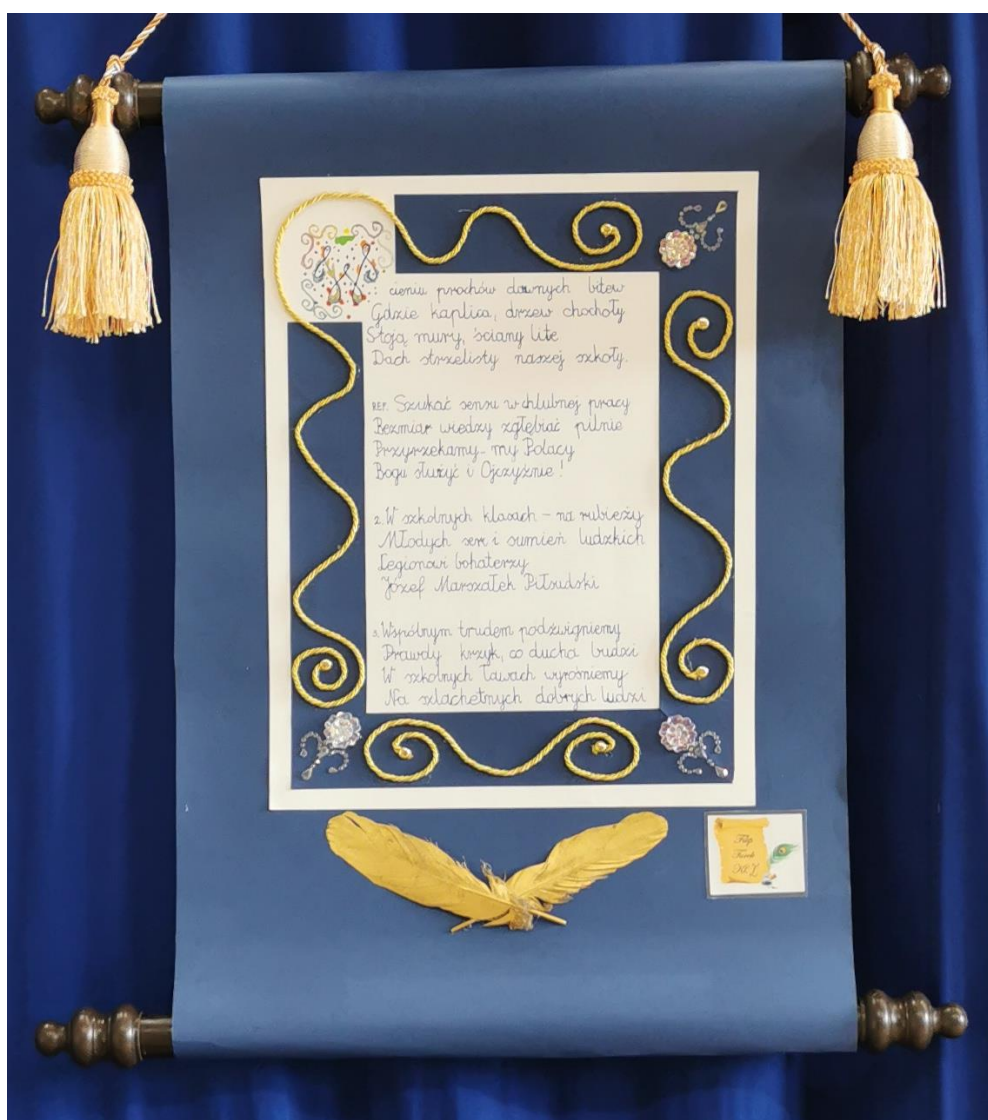 W cieniu prochów dawnych bitew
Gdzie kaplica, drzew chochoły
Stoją mury, ściany lite
Dach strzelisty naszej szkoły.
REF. Szukać sensu w chlubnej pracy
Bezmiar wiedzy zgłębiać pilnie
Przyrzekamy - my Polacy
Bogu służyć i Ojczyźnie!
2. W szkolnych klasach - na rubieży
Młodych serc i sumień ludzkich
Legionowi bohaterzy
Józef Marszałek Piłsudski
3. Wspólnym trudem podźwigniemy
Prawdy krzyk, co ducha budzi
W szkolnych ławach wyrośniemy
Na szlachetnych dobrych ludzi
Filip